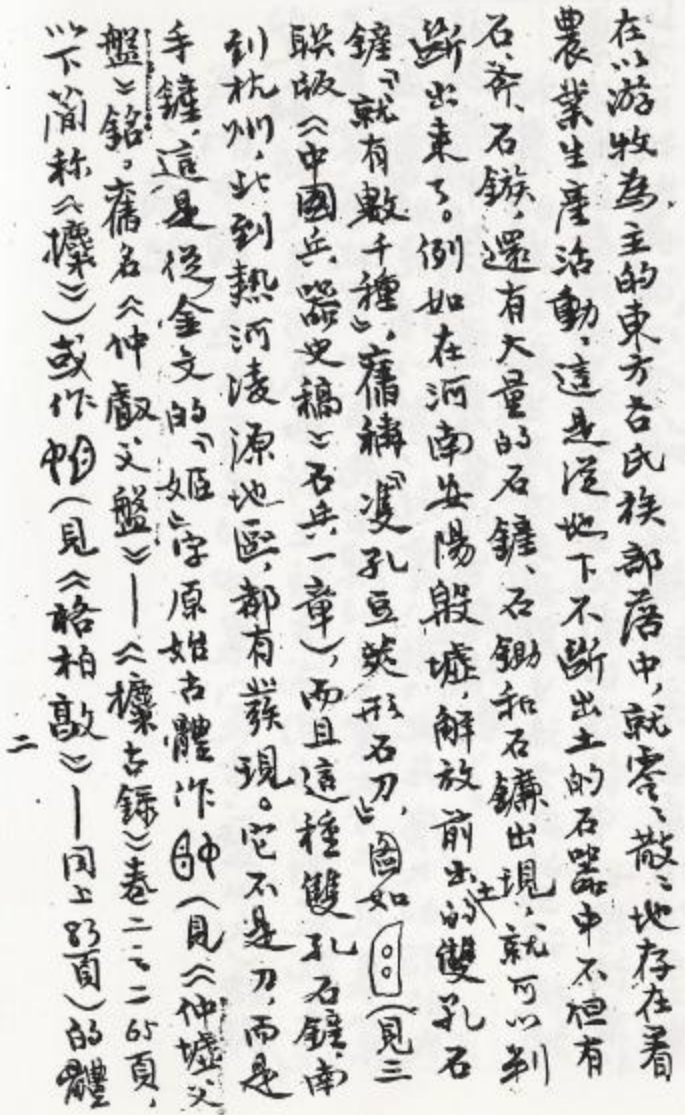 在以游牧為主的東方各氏族部落中，就零零散散地存在着
農業生產活動，這是從地下不斷出土的石器中不但有
石斧、石鏃，還有大量的石鏟、石鋤和石鐮出現，就可以判
斷出來了。例如在河南安陽殷墟，解放前出土的雙孔石
鏟「就有數千種」，舊稱「雙孔豆莢形石刀」，圖如（見三
聯版《中國兵器史稿》石兵一章），而且這種雙孔石鏟，南
到杭州，北到熱河淩源地區，都有發現。它不是刀，而是
手鏟，這是從金文的「姬」字原始古體作（見《仲墟父
盤》銘。舊名《仲叡父盤》—《攈古錄》卷二之二65頁，
以下簡称《攈》）或作（見《格柏𣪘》—同上83頁）的體
二